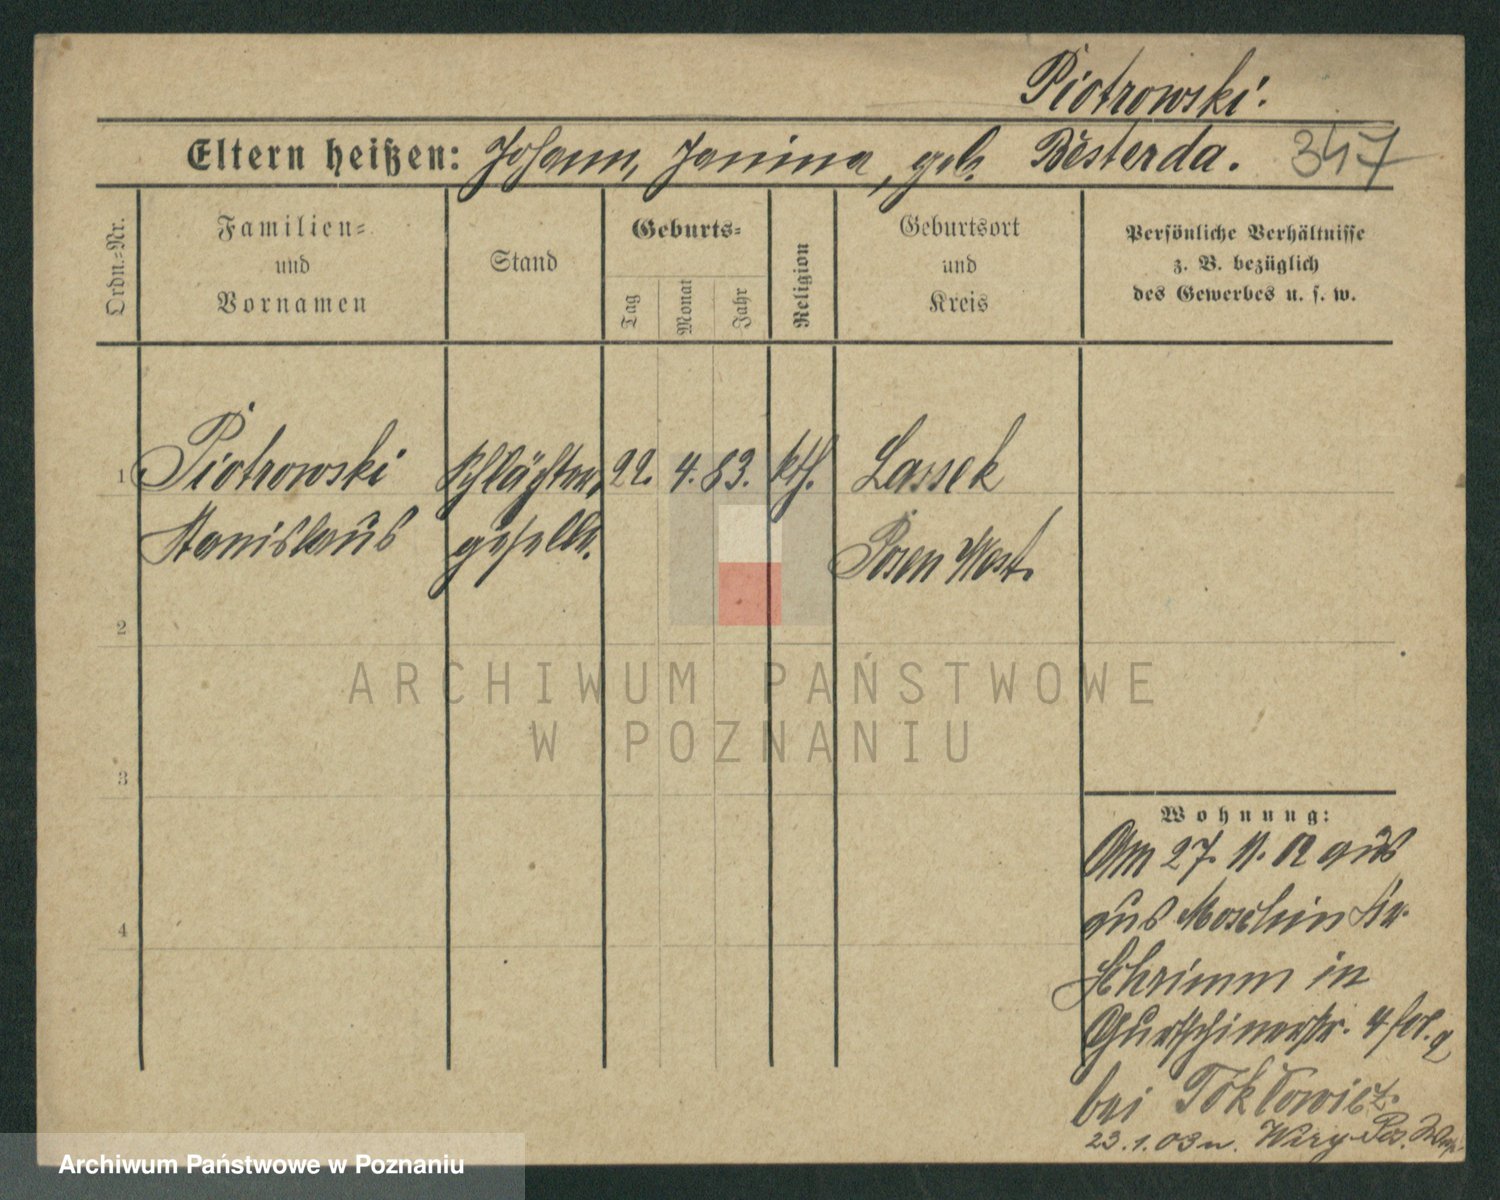 Piotrowski.
Eltern heißen: Johann, Janina, geb. Besterda. 347
Ordn.-Nr.
Familien-
und
Vornamen
Stand
Geburts-
Tag
Monat
Jahr
Religion
Geburtsort
und
Kreis
Persönliche Verhältnisse
z. B. bezüglich
des Gewerbes u. s. w.
1 Piotrowski Schlächter, 22. 4. 83. kth. Lassek
Stanislaus geselle. Posen West.
2
3
4
ARCHIWUM PAŃSTWOWE
W POZNANIU
Wohnung:
Am 27. 11. 02 aus
aus Moschin Kr.
Schrimm in
Gurtschinerstr. 4
bei
23.1.03 n. Wiry Pos. West
Archiwum Państwowe w Poznaniu